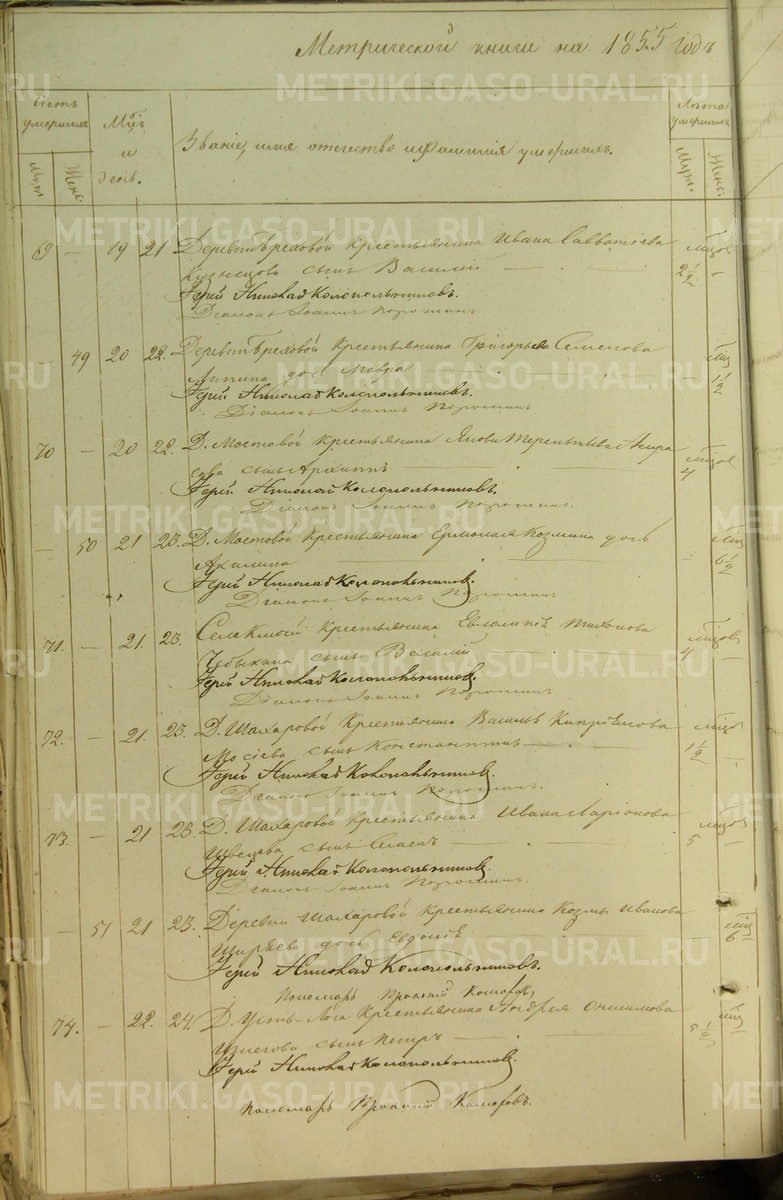 Метрической книге на 1855 годъ
Счетъ умершихъ
Муж.
Жен.
Мцъ и день.
Званіе, имя отечество и фамилія умершихъ.
Лѣта умершихъ
Муж.
Жен.
69 — 19 21 Деревни Брёховой крестьянина Ивана Савватіева 2½ —
Кузнецова сынъ Василій
Іерей Николай Колокольниковъ.
Діаконъ Іоаннъ Порошинъ
49 20 22. Деревни Брёховой крестьянина Григорья Семенова — 1½
дочь Мавра
Іерей Николай Колокольниковъ.
Діаконъ Іоаннъ Порошинъ
70 — 20 22. Д. Мостовой крестьянина Якова Терентьева 4
сынъ Архиппъ
Іерей Николай Колокольниковъ.
Діаконъ Іоаннъ Порошинъ.
— 50 21 23. Д. Мостовой крестьянина Ермолая Козмина дочь — 6½
Акилина
Іерей Николай Колокольниковъ.
Діаконъ Іоаннъ Порошинъ
71. — 21. 23. Села крестьянина Евлампія Тихонова 4 —
Чебыкина сынъ Василій
Іерей Николай Колокольниковъ.
Діаконъ Іоаннъ Порошинъ.
72. — 21. 23. Д. Шахаровой крестьянина Василья Кипріянова 1½ —
Мосіева сынъ Константинъ
Іерей Николай Колокольниковъ.
Діаконъ Іоаннъ Порошинъ.
73. — 21 23. Д. Шахаровой крестьянина Ивана Ларіонова 5 —
Швецова сынъ Семенъ
Іерей Николай Колокольниковъ.
Діаконъ Іоаннъ Порошинъ.
— 51 21 23. Деревни Шахаровой крестьянина Козмы Иванова 6
дочь Евдокія
Іерей Николай Колокольниковъ.
Пономарь Комаровъ
74. — 22. 24. Д. Усть-Лога крестьянина Андрея Онисимова
сынъ Петръ
Іерей Николай Колокольниковъ.
Пономарь Комаровъ.
METRIKI.GASO-URAL.RU